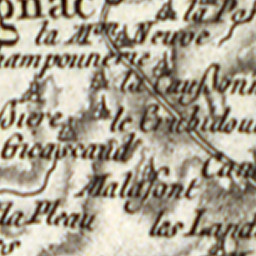 gnac
la Pe
la M.on Neuve
hampounerie
la Caussonn
ssiere
le Cribidou
Gicascaud
Can
Malafont
la Pleau
las Land
es